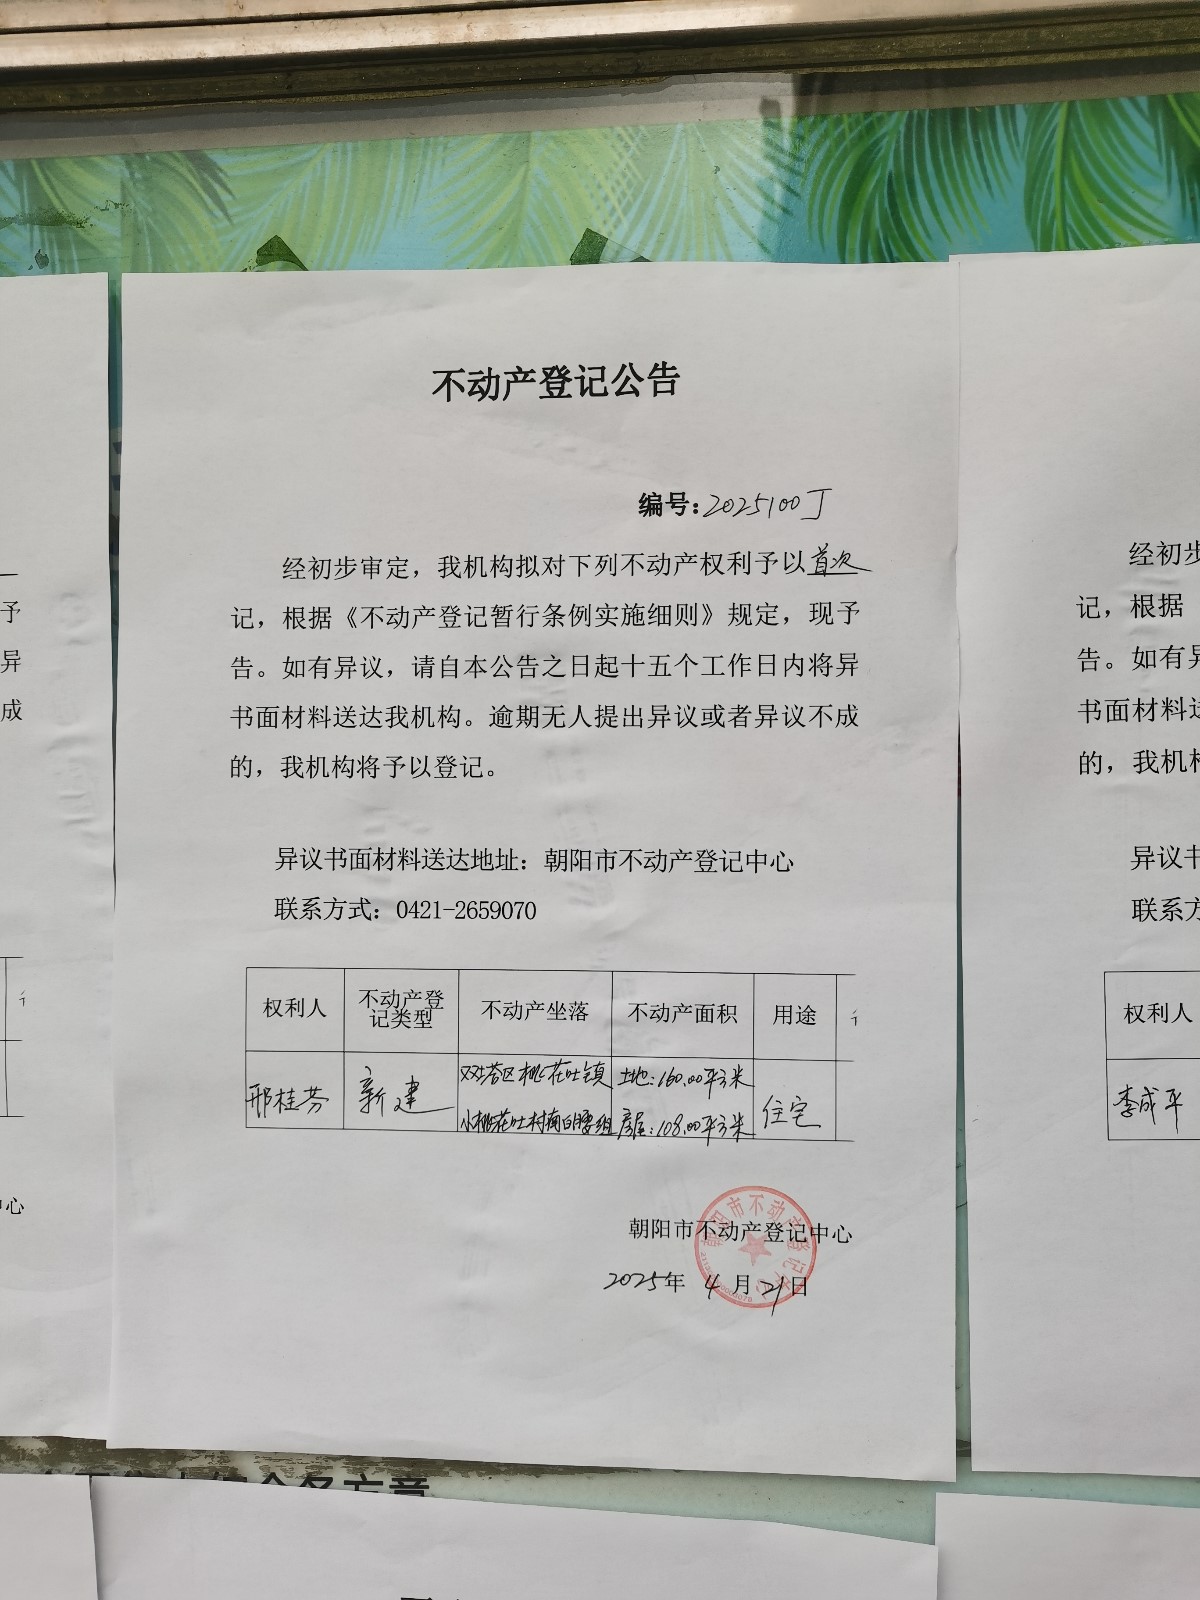 不动产登记公告
编号:2025100J
经初步审定，我机构拟对下列不动产权利予以首次
记，根据《不动产登记暂行条例实施细则》规定，现予
告。如有异议，请自本公告之日起十五个工作日内将异
书面材料送达我机构。逾期无人提出异议或者异议不成
的，我机构将予以登记。
异议书面材料送达地址：朝阳市不动产登记中心
联系方式：0421-2659070
权利人 不动产登记类型 不动产坐落 不动产面积 用途
邢桂芬 新建 双塔区桃花吐镇 土地:160.00平方米 住宅
小桃花吐村南 组 房屋:108.00平方米
朝阳市不动产登记中心
2025年 4月21日
朝阳市不动产登记中心
予
异
成
中心
经初步
记，根据
告。如有异
书面材料送
的，我机构
异议书
联系方
权利人
李成平